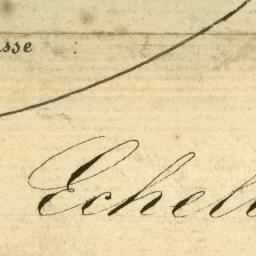 sse
Echel